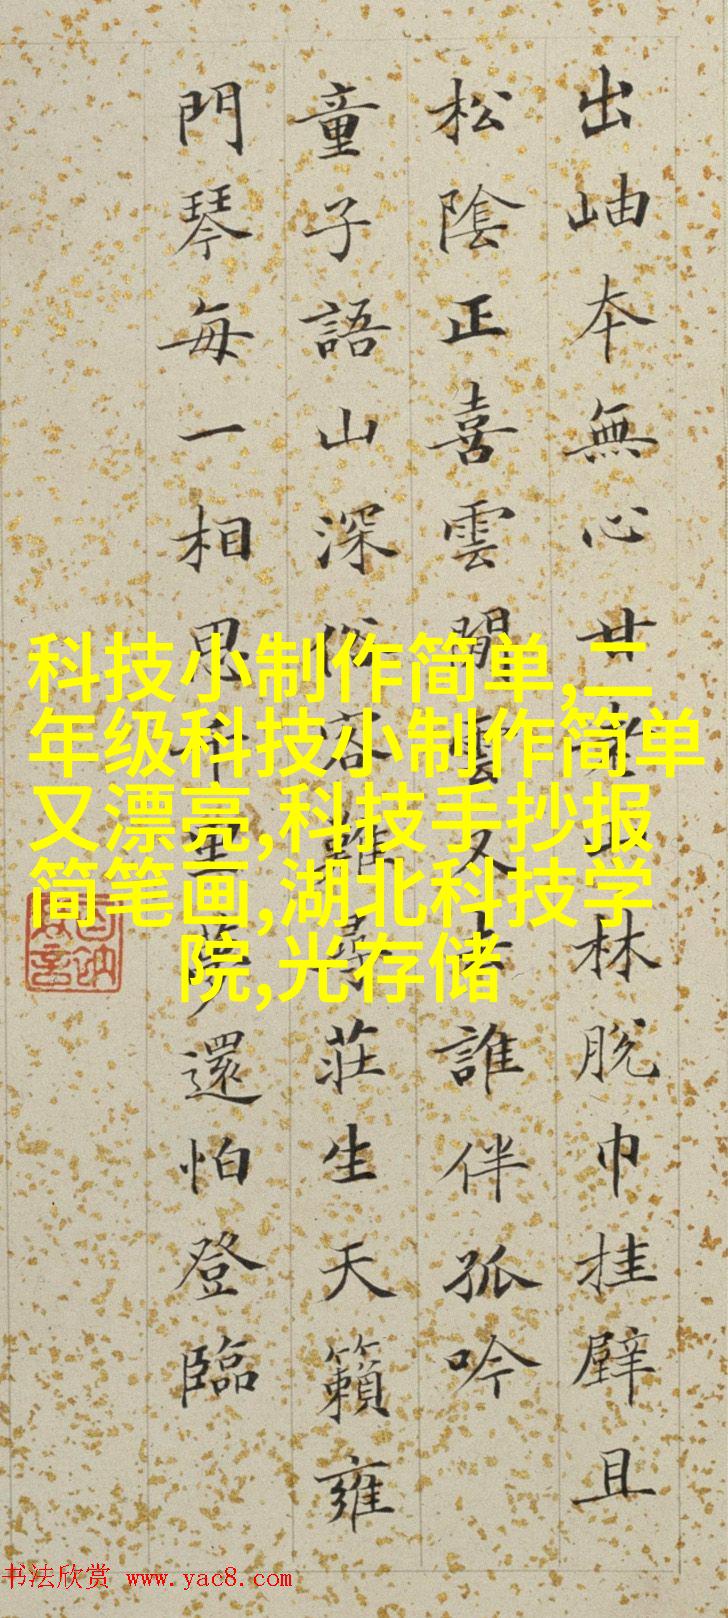 出岫本無心甘老林脫巾挂壁且
松陰正喜雲閒雲又去誰伴孤吟
童子語山深俗客難尋莊生天籟雍
門琴每一相思千里夢還怕登臨
科技小制作简单,二
年级科技小制作简单
又漂亮,科技手抄报
简笔画,湖北科技学
院,光存储
书法欣赏 www.yac8.com